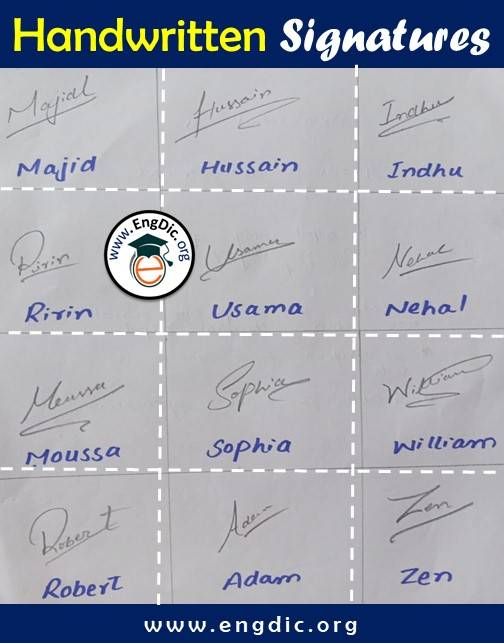 Handwritten Signatures
Majid Hussain Indhu
Majid Hussain Indhu
www.EngDic.org
e
Ririn Usama Nehal
Ririn Usama Nehal
Moussa Sophia William
Moussa Sophia William
Robert Adam Zen
Robert Adam Zen
www.engdic.org